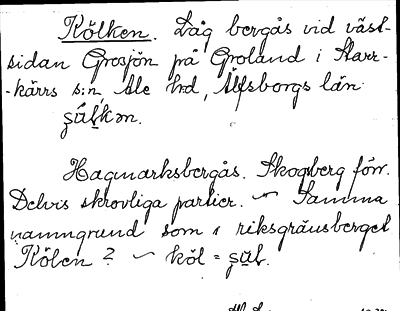 Kölken. Låg bergås vid väst-
sidan Grosjön på Groland i Starr-
-kärrs s:n, Ale hd, Älfsborgs län.
Hagmarksbergås. Skogberg förr.
Delvis skrovliga partier. — Samma
namngrund som i riksgränsberget
Kölen? — köl =